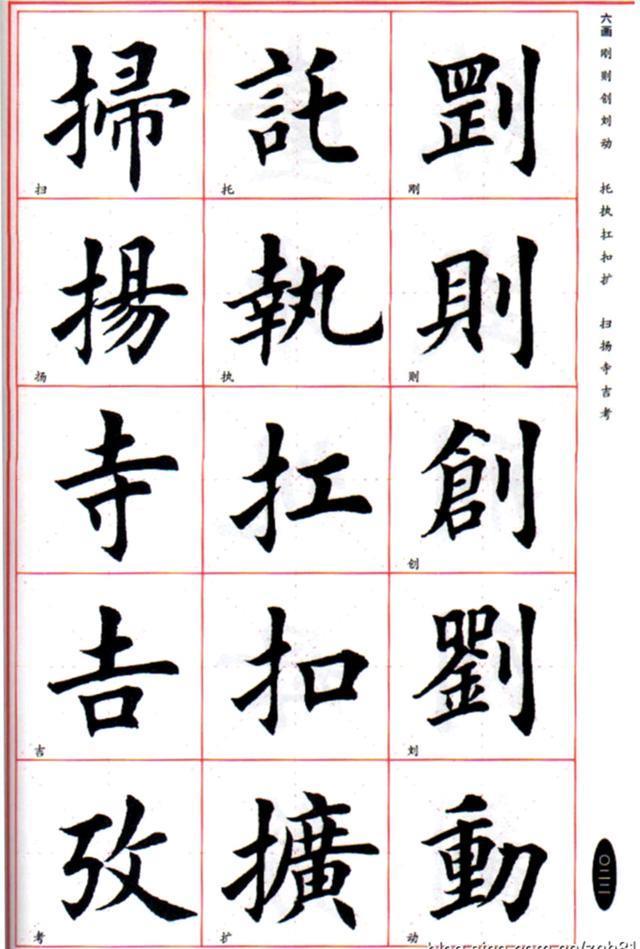 六画 刚则创刘动 托执扛扣扩 扫扬寺吉考
㓻
刚
則
则
創
创
劉
刘
動
动
託
托
執
执
扛
扣
擴
扩
掃
扫
揚
扬
寺
𠮷
吉
攷
考
〇二二